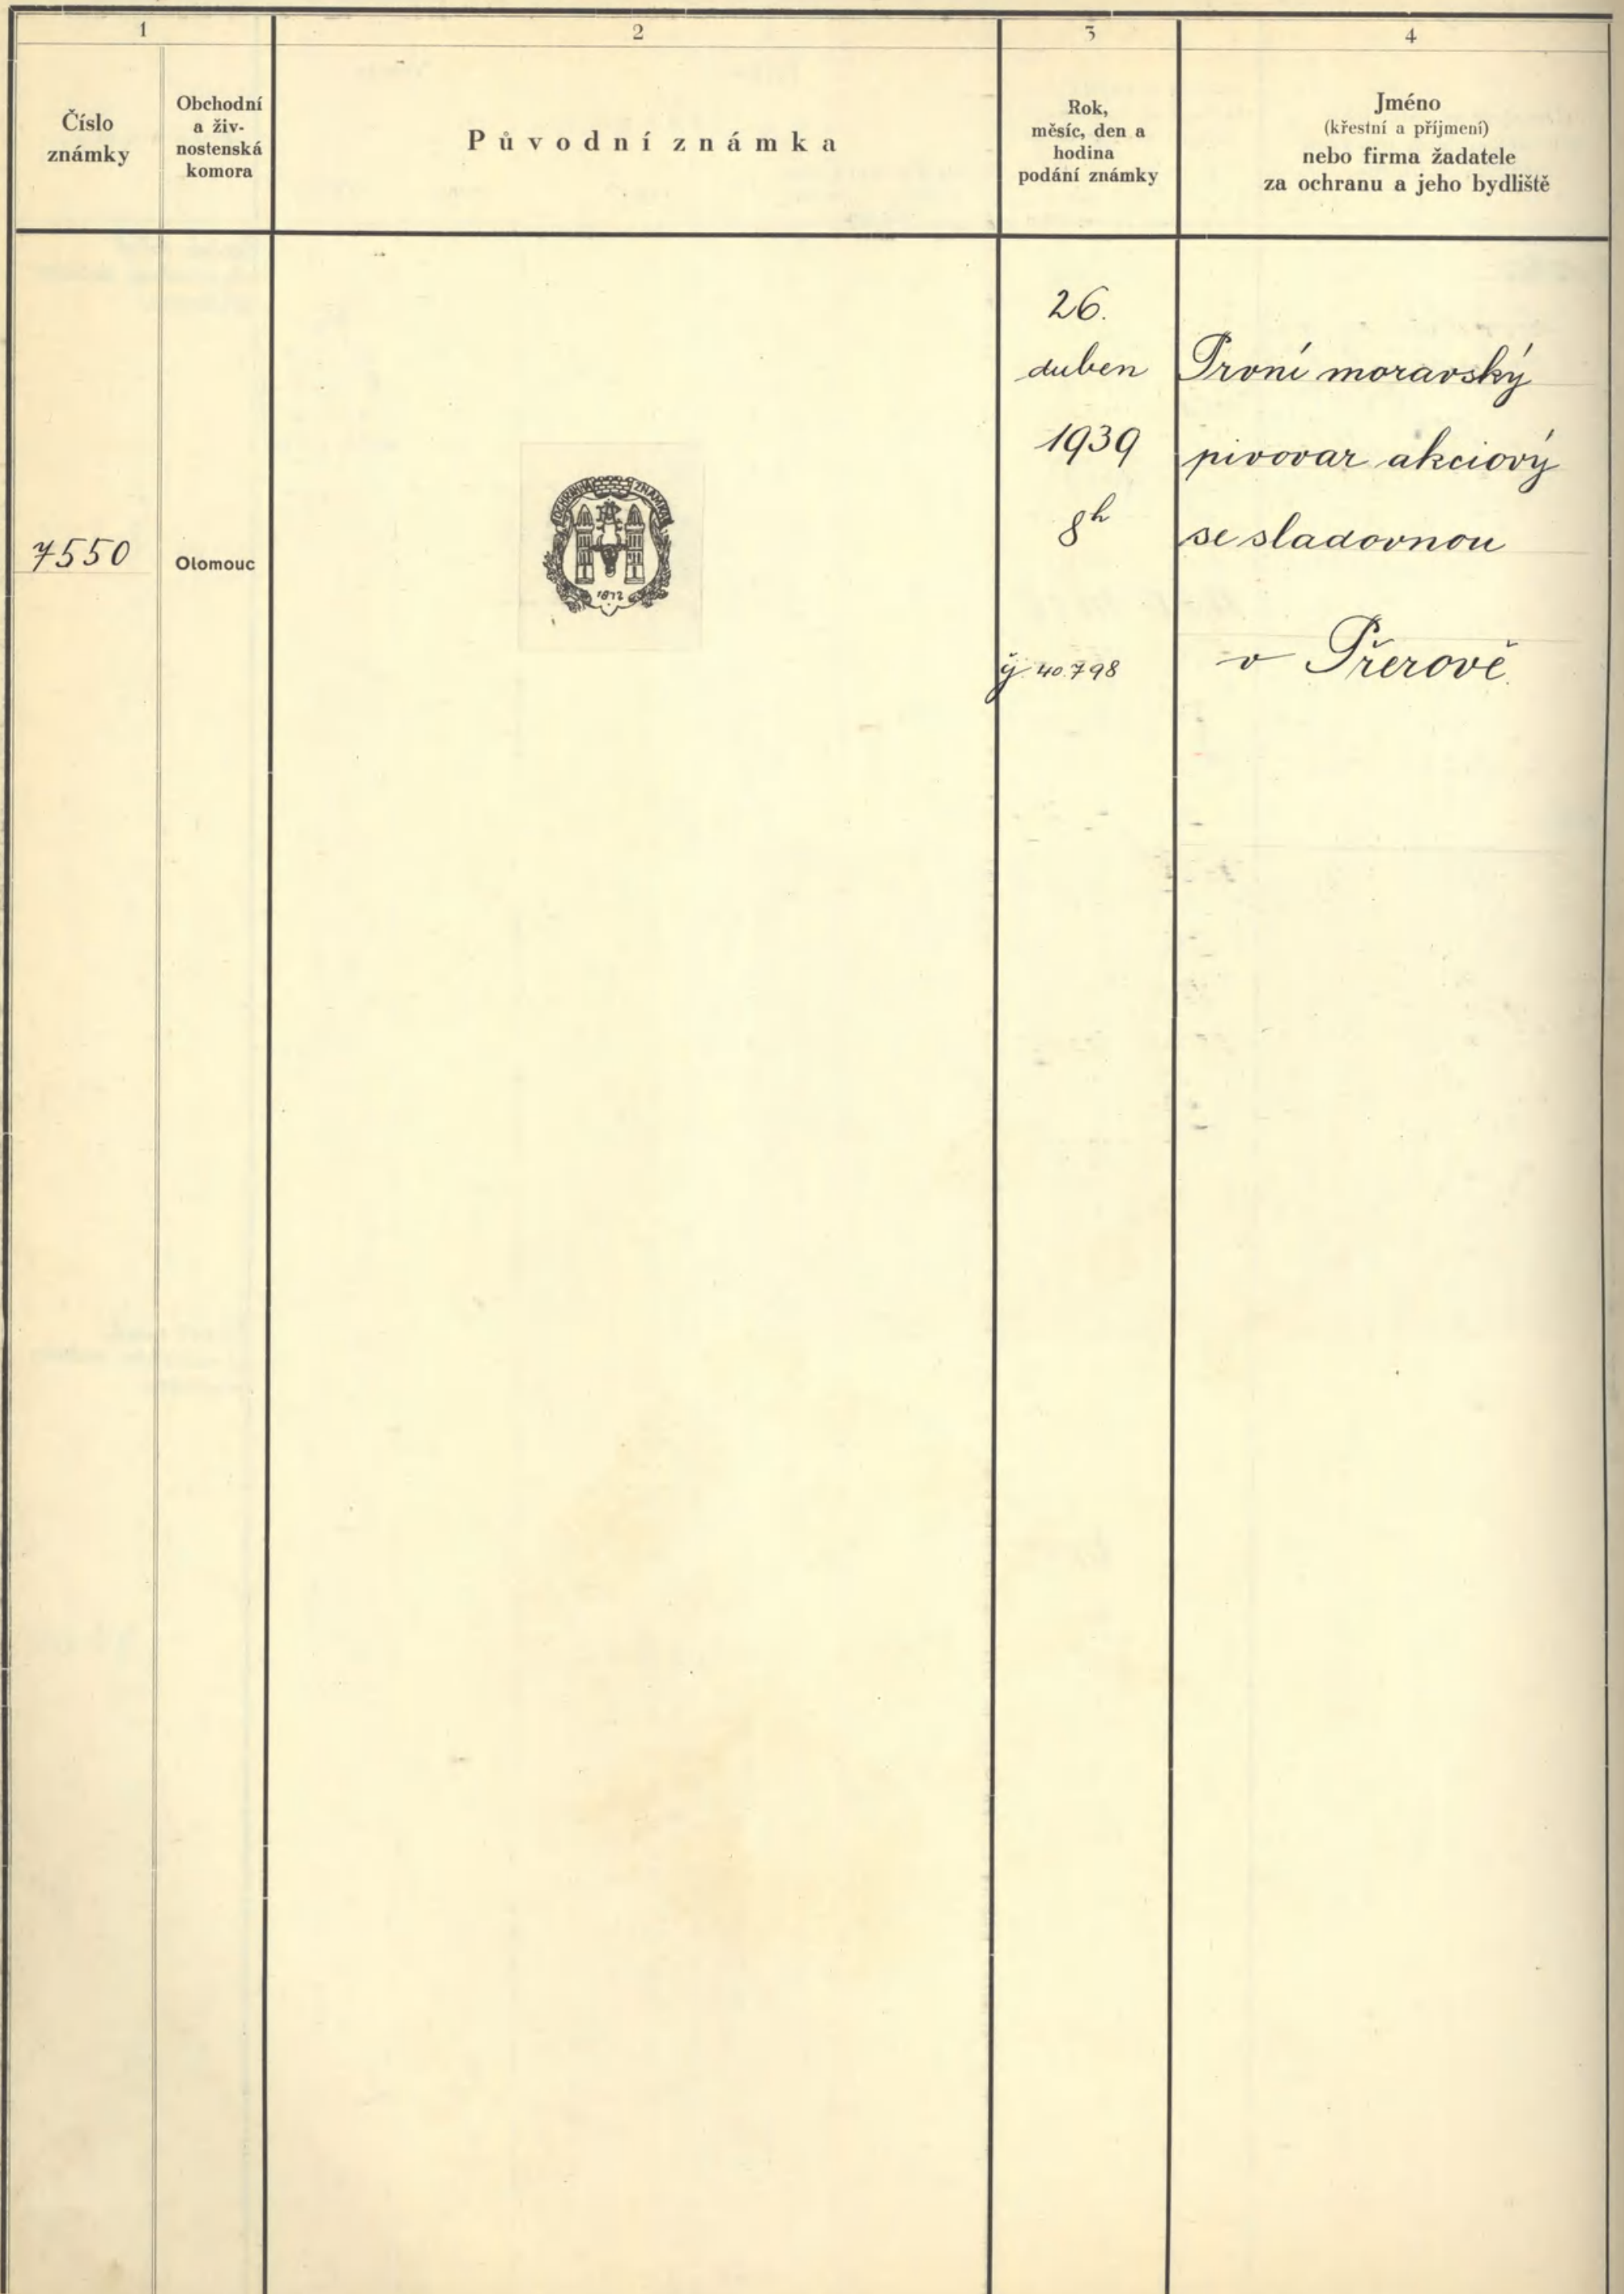 1
2
3
4
Číslo
známky
Obchodní
a živ-
nostenská
komora
Původní známka
Rok,
měsíc, den a
hodina
podání známky
Jméno
(křestní a příjmení)
nebo firma žadatele
za ochranu a jeho bydliště
7550
Olomouc
OCHRANNÁ ZNÁMKA
1872
26.
duben
1939
8h
40.798
První moravský
pivovar akciový
se sladovnou
v Přerově.